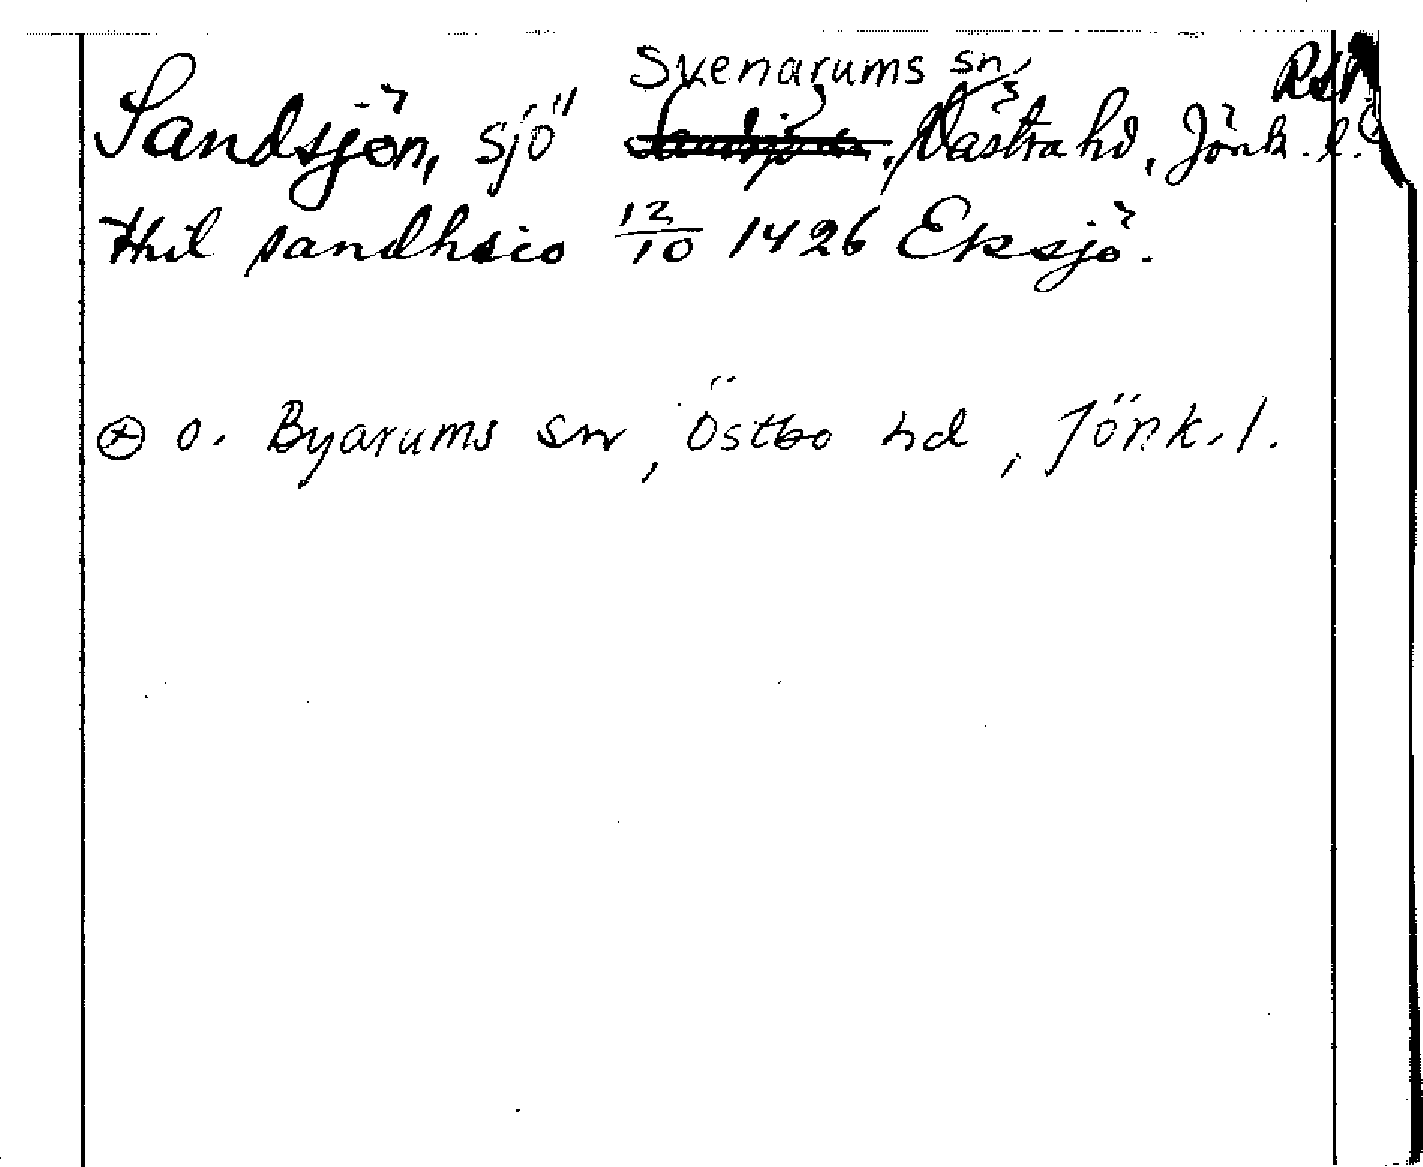 Svenarums sn
Sandsjön, sjö , Västra hd, Jönk. l.
til sandhsio 12/10 1426 Eksjö.
⊗ o. Byarums sn, Östbo hd, Jönk. l.